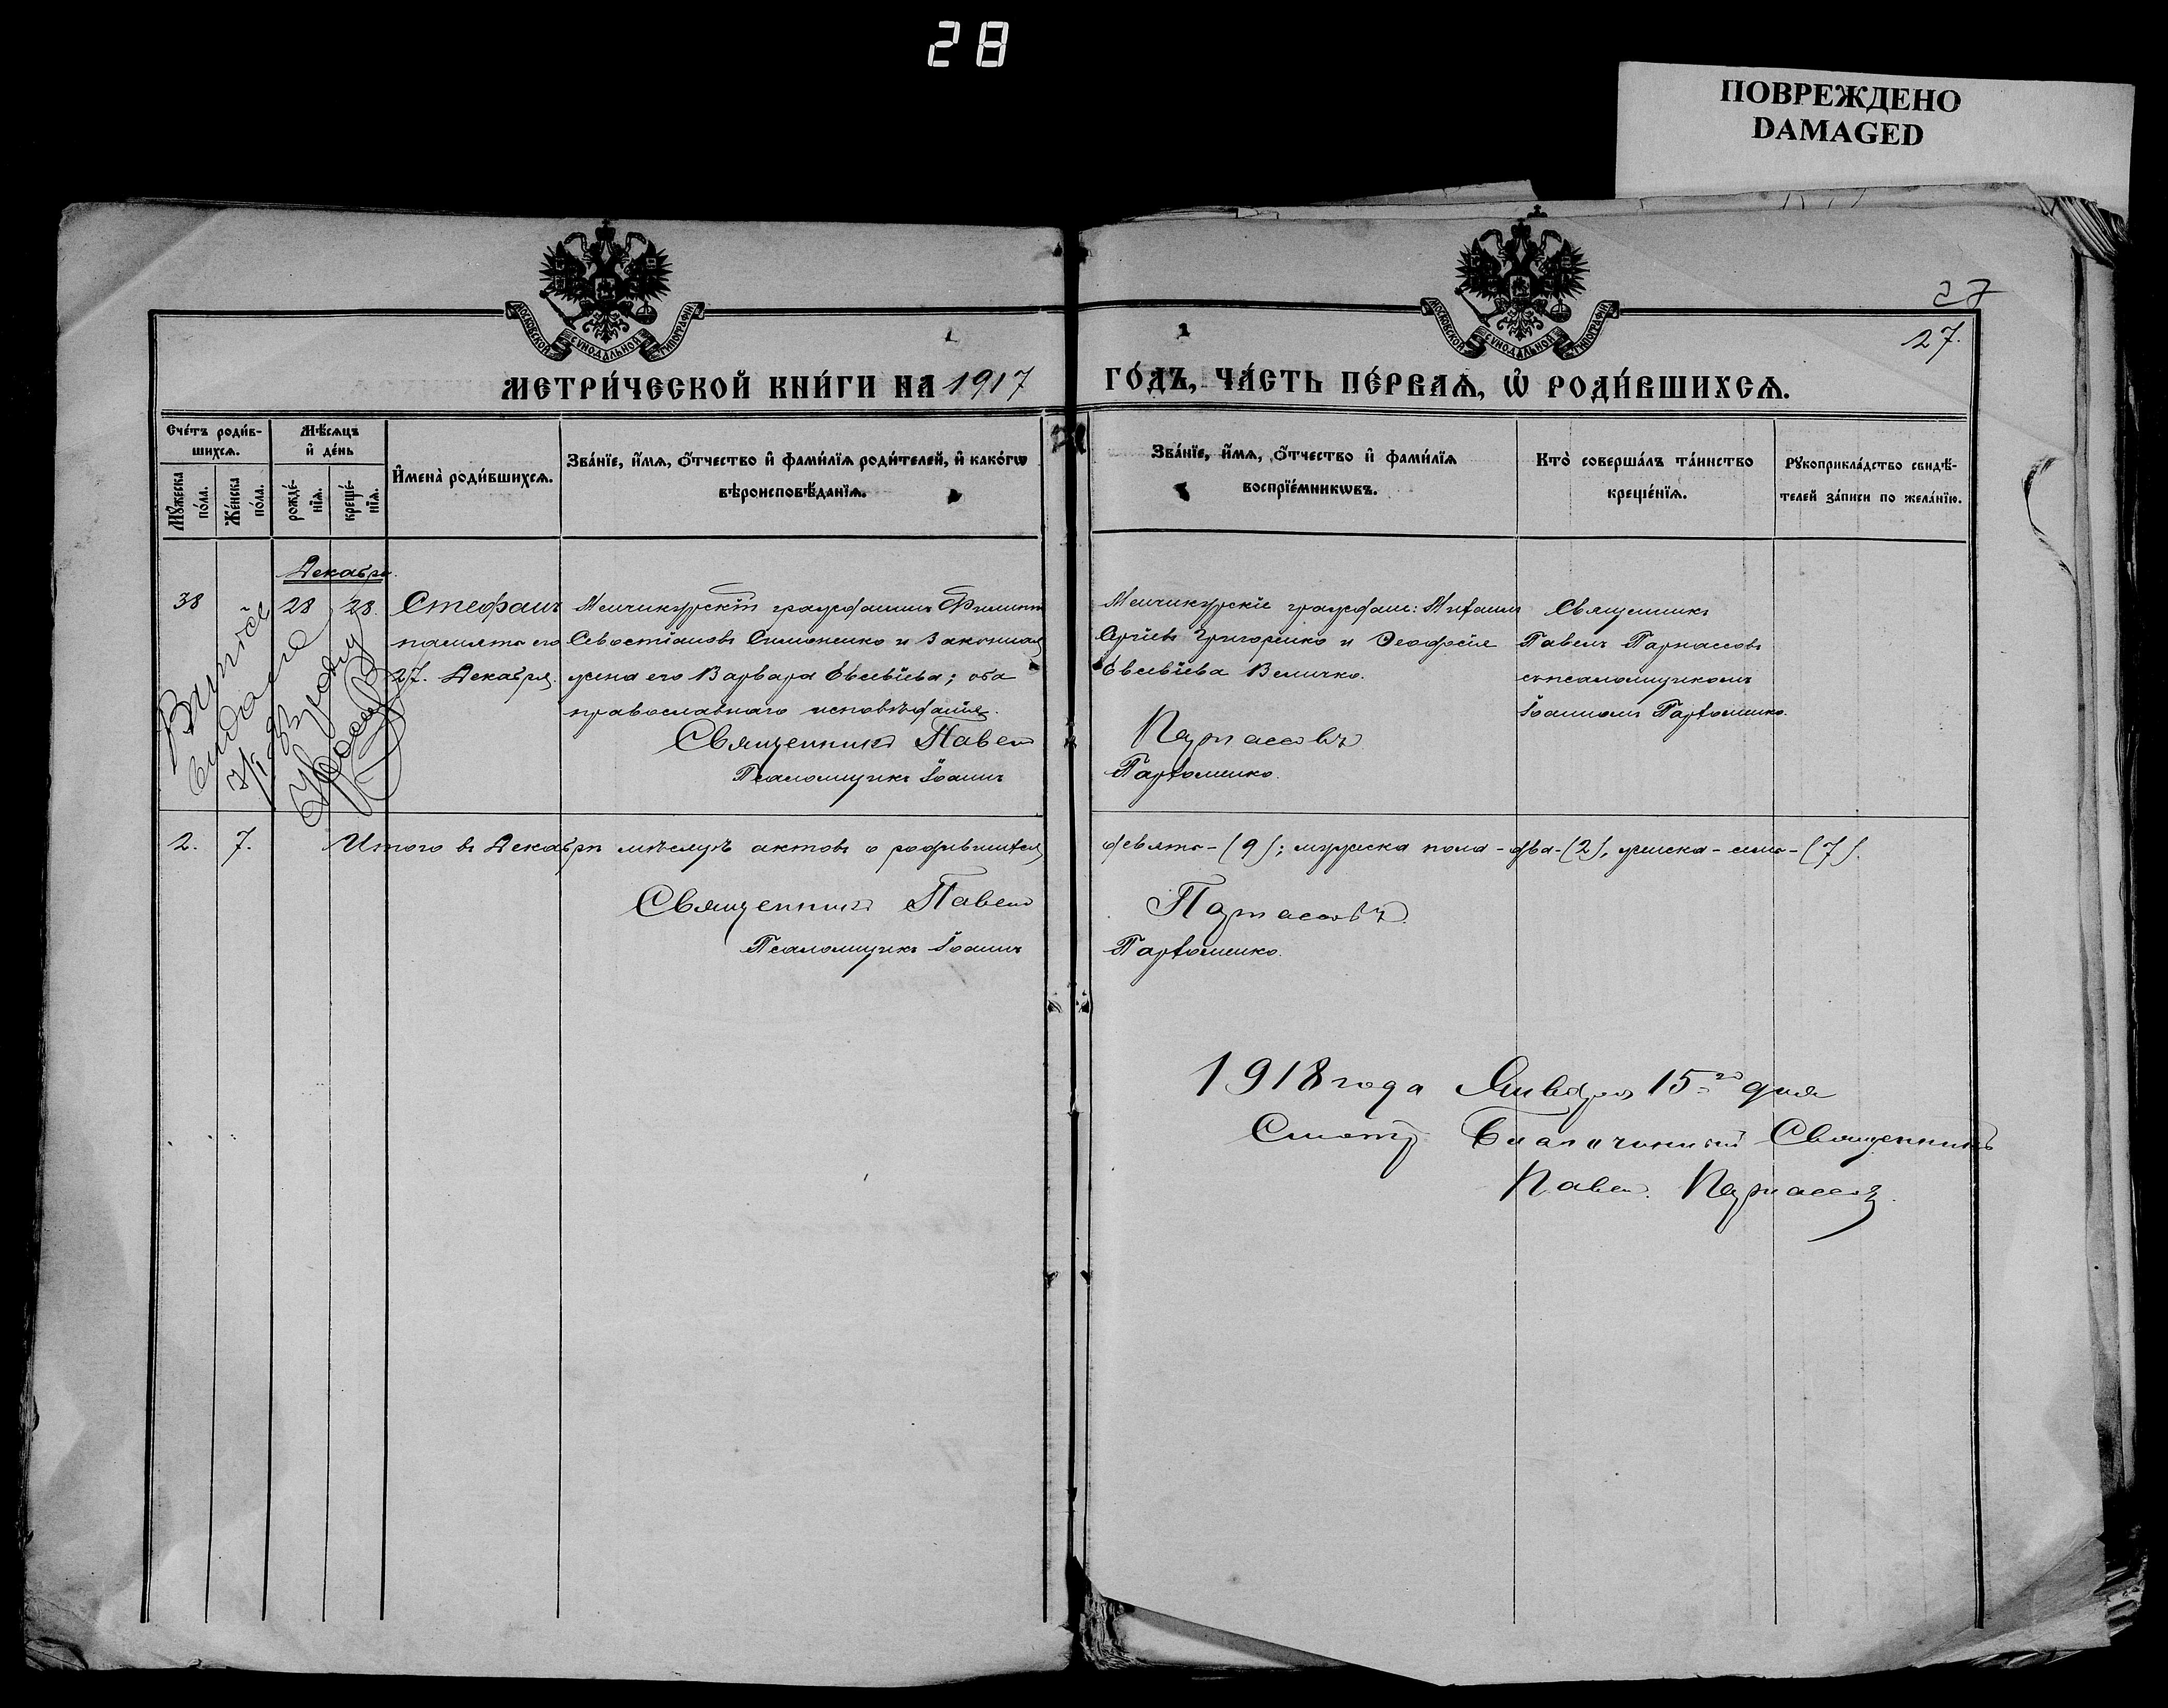 28
ПОВРЕЖДЕНО
DAMAGED
27
27.
МОСКОВСКОЙ СѴНОДАЛЬНОЙ ТИПОГРАФІИ
МОСКОВСКОЙ СѴНОДАЛЬНОЙ ТИПОГРАФІИ
МЕТРИ́ЧЕСКОЙ КНИ́ГИ НА 1917
ГО́ДЪ, ЧА́СТЬ ПЕ́РВАѦ, Ѡ҆ РОДИ́ВШИХСѦ.
Сче́тъ роди́в-
шихсѧ.
Мꙋ́жеска
по́ла.
Же́нска
по́ла.
Мѣ́сѧцъ
и҆ де́нь
рожде́-
нїѧ.
креще́-
нїѧ.
И҆мена̀ роди́вшихсѧ.
Зва́нїе, и҆́мѧ, ѻ҆́тчество и҆ фами́лїѧ роди́телей, и҆ како́гѡ
вѣроисповѣ́данїѧ.
Зва́нїе, и҆́мѧ, ѻ҆́тчество и҆ фами́лїѧ
воспрїе́мникѡвъ.
Кто̀ соверша́лъ та́инство
креще́нїѧ.
Рꙋкоприкла́дство свидѣ́-
телей за́писи по жела́нїю.
Декабрь.
38
28
28.
Стефанъ
память его
27. Декабря.
Менчикурскій гражданинъ Филиппъ
Севостіановъ Симоненко и законная
жена его Варвара Евсевіева; оба
православнаго исповѣданія.
Священникъ Павелъ
Псаломщикъ Іоаннъ
Менчикурскіе граждане: Михаилъ
Сергіевъ Григоренко и Феодосія
Евсевіева Величко.
Парнассовъ
Пархоменко.
Священникъ
Павелъ Парнассовъ
съ псаломщикомъ
Іоанномъ Пархоменко.
2.
7.
Итого въ Декабрѣ мѣсяцѣ актовъ о родившихся
девять-(9); мужеска пола-два-(2), женска-семь-(7).
Священникъ Павелъ
Псаломщикъ Іоаннъ
Парнассовъ
Пархоменко.
1918 года Января 15го дня
Смотр. Благочинный Священникъ
Павелъ Парнассовъ